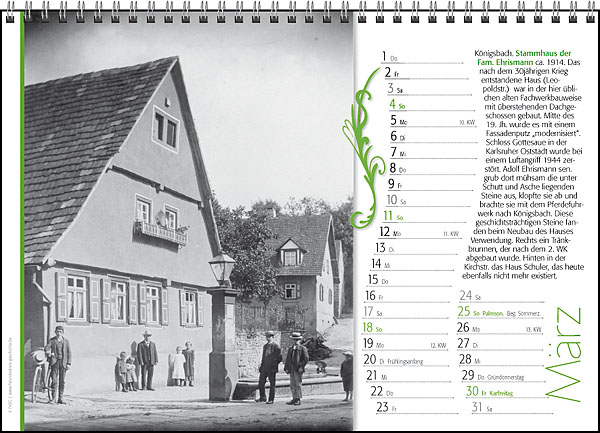 Königsbach. Stammhaus der
Fam. Ehrismann ca. 1914. Das
nach dem 30jährigen Krieg
entstandene Haus (Leo-
poldstr.) war in der hier übli-
chen alten Fachwerkbauweise
mit überstehenden Dachge-
schossen gebaut. Mitte des
19. Jh. wurde es mit einem
Fassadenputz „modernisiert".
Schloss Gottesaue in der
Karlsruher Oststadt wurde bei
einem Luftangriff 1944 zer-
stört. Adolf Ehrismann sen.
grub dort mühsam die unter
Schutt und Asche liegenden
Steine aus, klopfte sie ab und
brachte sie mit dem Pferdefuhr-
werk nach Königsbach. Diese
geschichtsträchtigen Steine fan-
den beim Neubau des Hauses
Verwendung. Rechts ein Tränk-
brunnen, der nach dem 2. WK
abgebaut wurde. Hinten in der
Kirchstr. das Haus Schuler, das heute
ebenfalls nicht mehr existiert.
1 Do
2 Fr
3 Sa
4 So
5 Mo 10. KW
6 Di
7 Mi
8 Do
9 Fr
10 Sa
11 So
12 Mo 11. KW
13 Di
14 Mi
15 Do
16 Fr
17 Sa
18 So
19 Mo 12. KW
20 Di Frühlingsanfang
21 Mi
22 Do
23 Fr
24 Sa
25 So Palmson., Beg. Sommerz.
26 Mo 13. KW
27 Di
28 Mi
29 Do Gründonnerstag
30 Fr Karfreitag
31 Sa
März